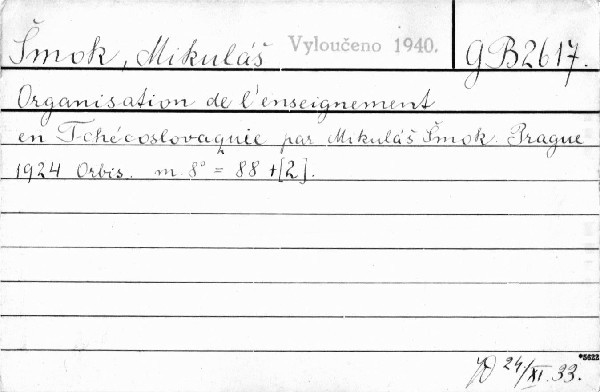 Šmok, Mikuláš Vyloučeno 1940. gB2617.
Organisation de l'enseignement
en Tchécoslovaquie par Mikuláš Šmok. Prague
1924 Orbis. m. 8° = 88 + [2].
*5622
24/XI. 33.